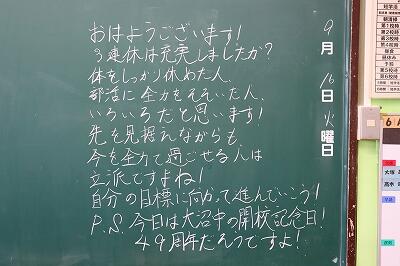 おはようございます!
3連休は充実しましたか?
体をしっかり休めた人、
部活に全力をそそいだ人、
いろいろだと思います!
先を見据えながらも、
今を全力で過ごせる人は
立派ですよね!
自分の目標に向かって進んでいこう!
P.S. 今日は大沼中の開校記念日!
49周年だそうですよ!
9月16日火曜日